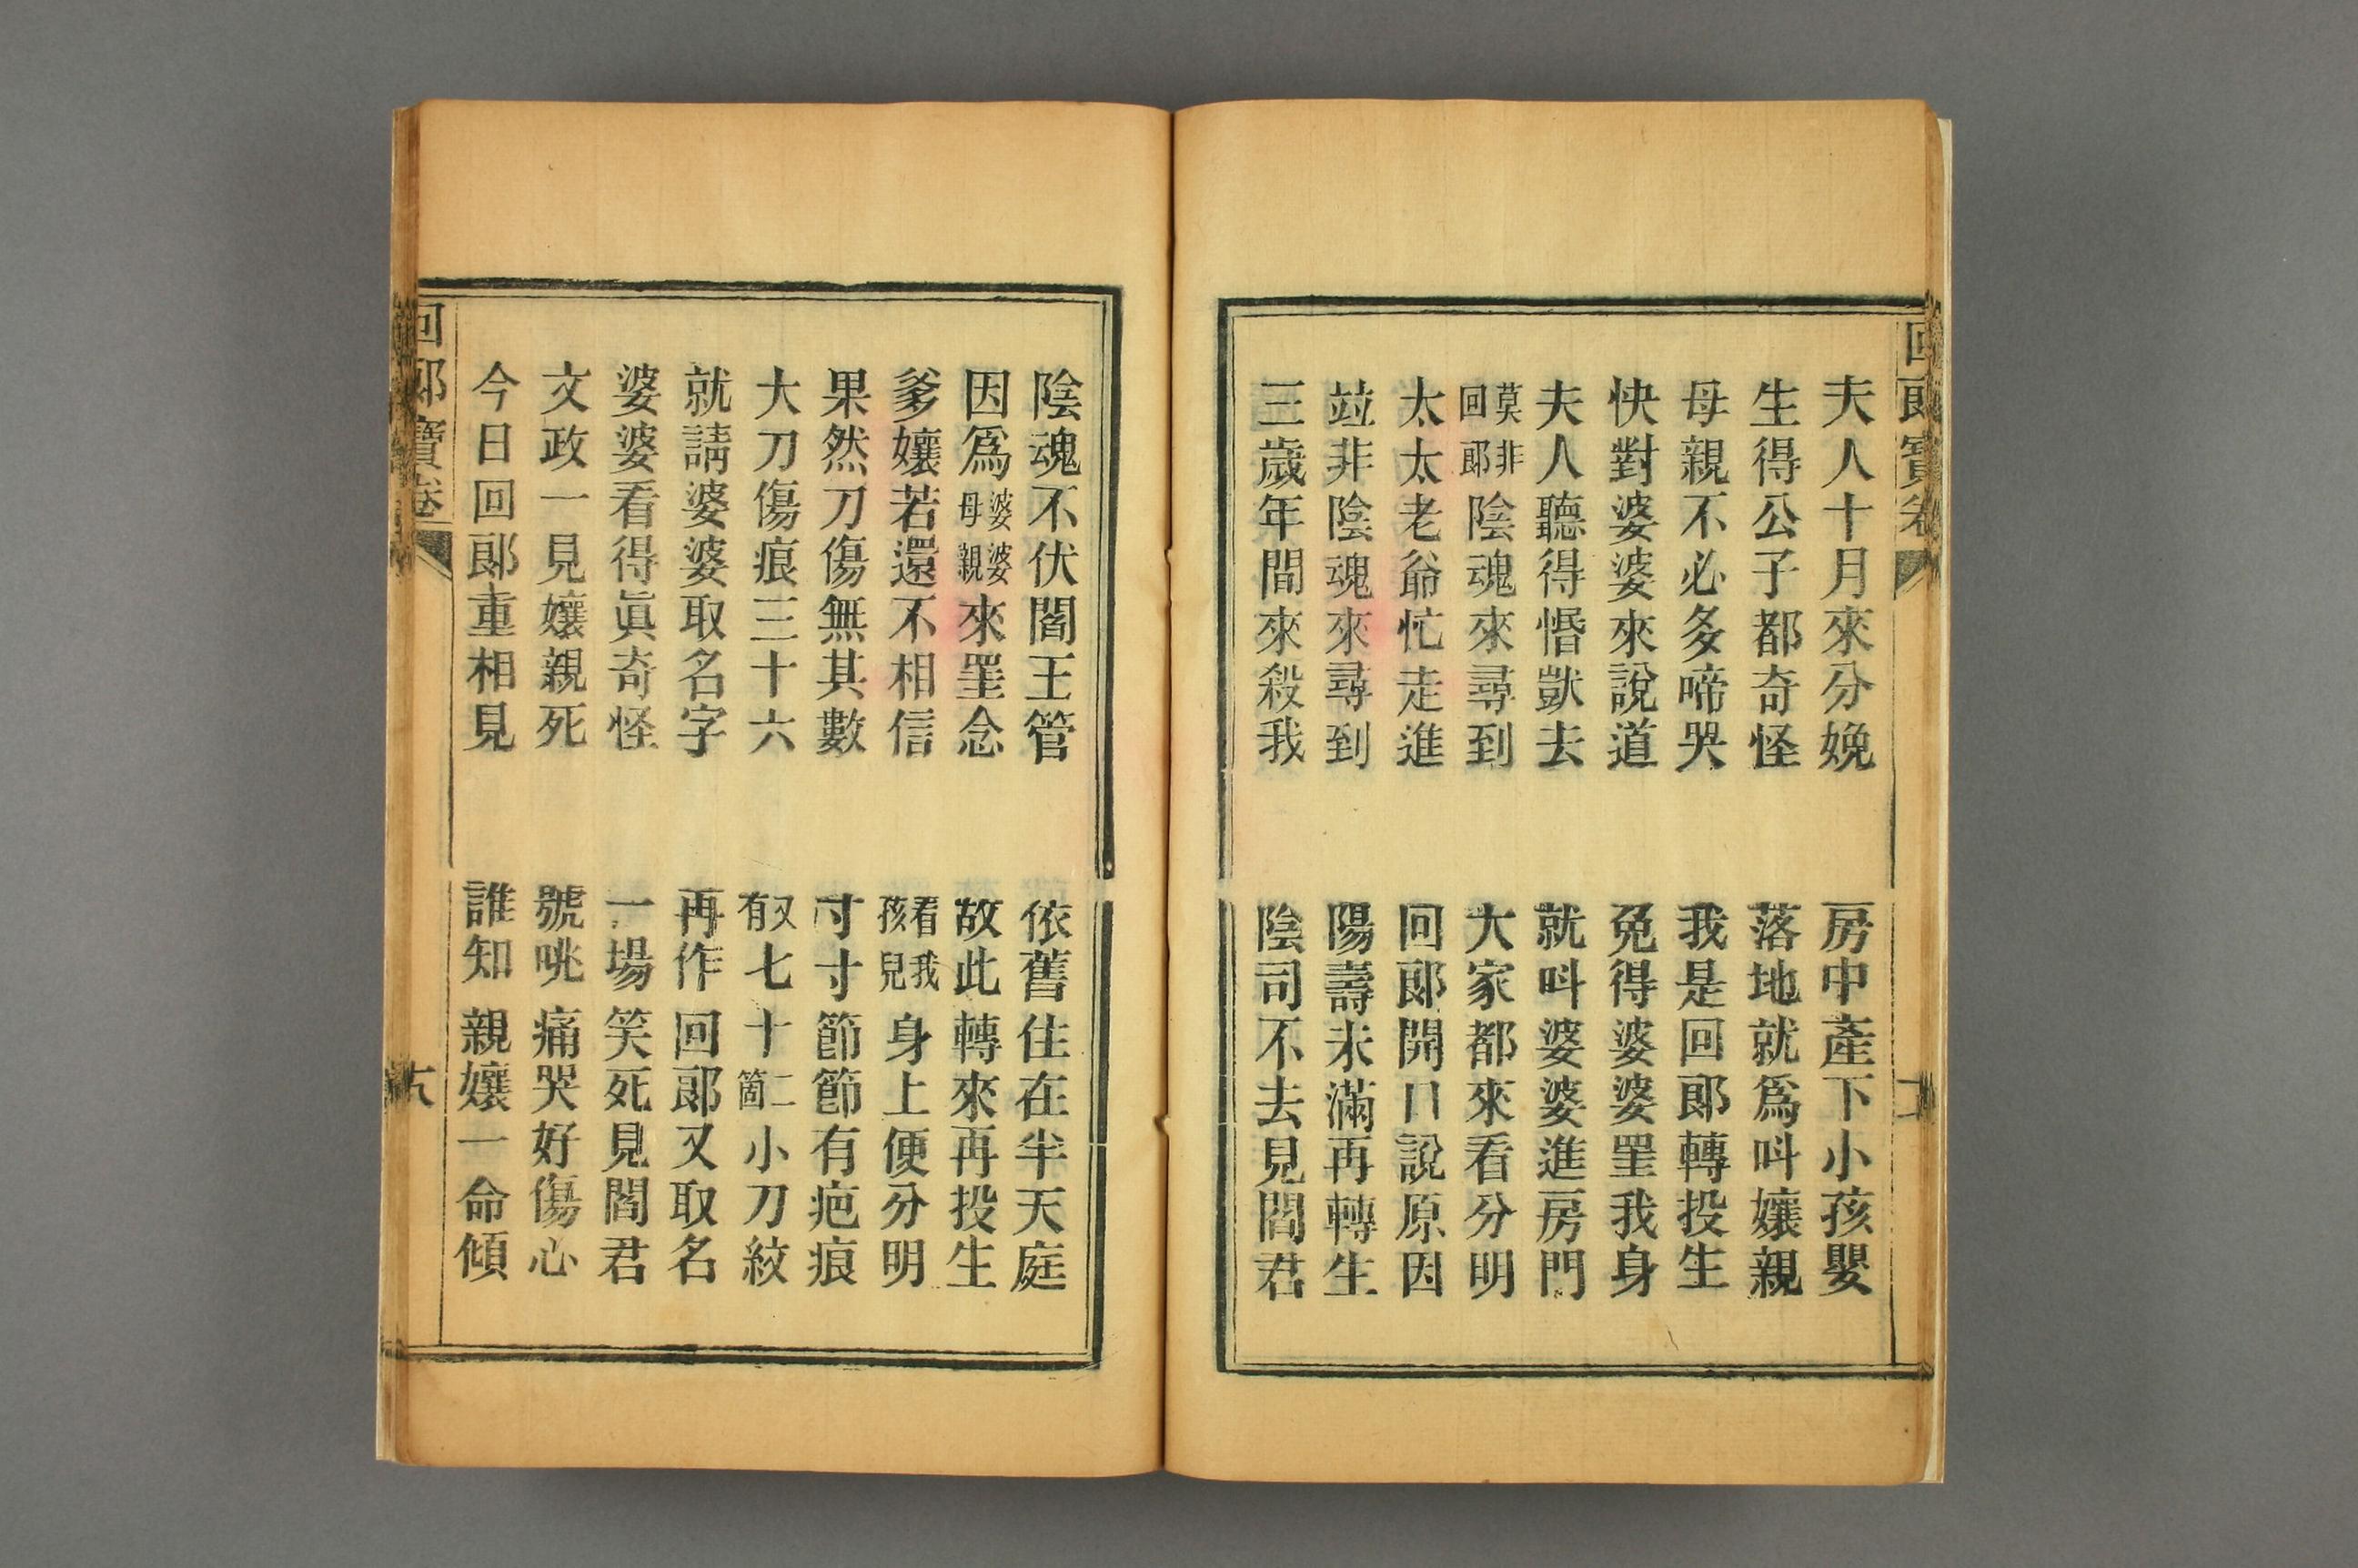 回郎寶卷
夫人十月來分娩　房中產下小孩嬰
生得公子都奇怪　落地就爲呌孃親
母親不必多啼哭　我是回郎轉投生
快對婆婆來說道　免得婆婆罣我身
夫人聽得惛獃去　就呌婆婆進房門
莫非回郎陰魂來尋到　大家都來看分明
太太老爺忙走進　回郎開口說原因
竝非陰魂來尋到　陽壽未滿再轉生
三歲年間來殺我　陰司不去見閻君
陰魂不伏閻王管　依舊住在半天庭
因爲婆婆母親來罣念　故此轉來再投生
爹孃若還不相信　看我孩兒身上便分明
果然刀傷無其數　寸寸節節有疤痕
大刀傷痕三十六　又有七十二箇小刀紋
就請婆婆取名字　再作回郎又取名
婆婆看得眞奇怪　一場笑死見閻君
文政一見孃親死　號咷痛哭好傷心
今日回郎重相見　誰知親孃一命傾
回郎寶卷